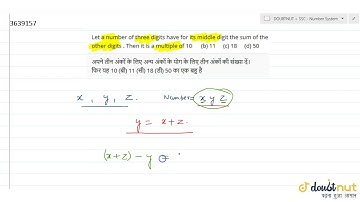 3639157
DOUBTNUT > SSC : Number System
Let a number of three digits have for its middle digit the sum of the
other digits . Then it is a multiple of 10 (b) 11 (c) 18 (d) 50
अपने तीन अंकों के लिए अन्य अंकों के योग के लिए तीन अंकों की संख्या दें।
फिर यह 10 (बी) 11 (सी) 18 (डी) 50 का एक बहु है
x , y , z . Number = x y z
y = x + z .
(x+z) - y =
doubtnut